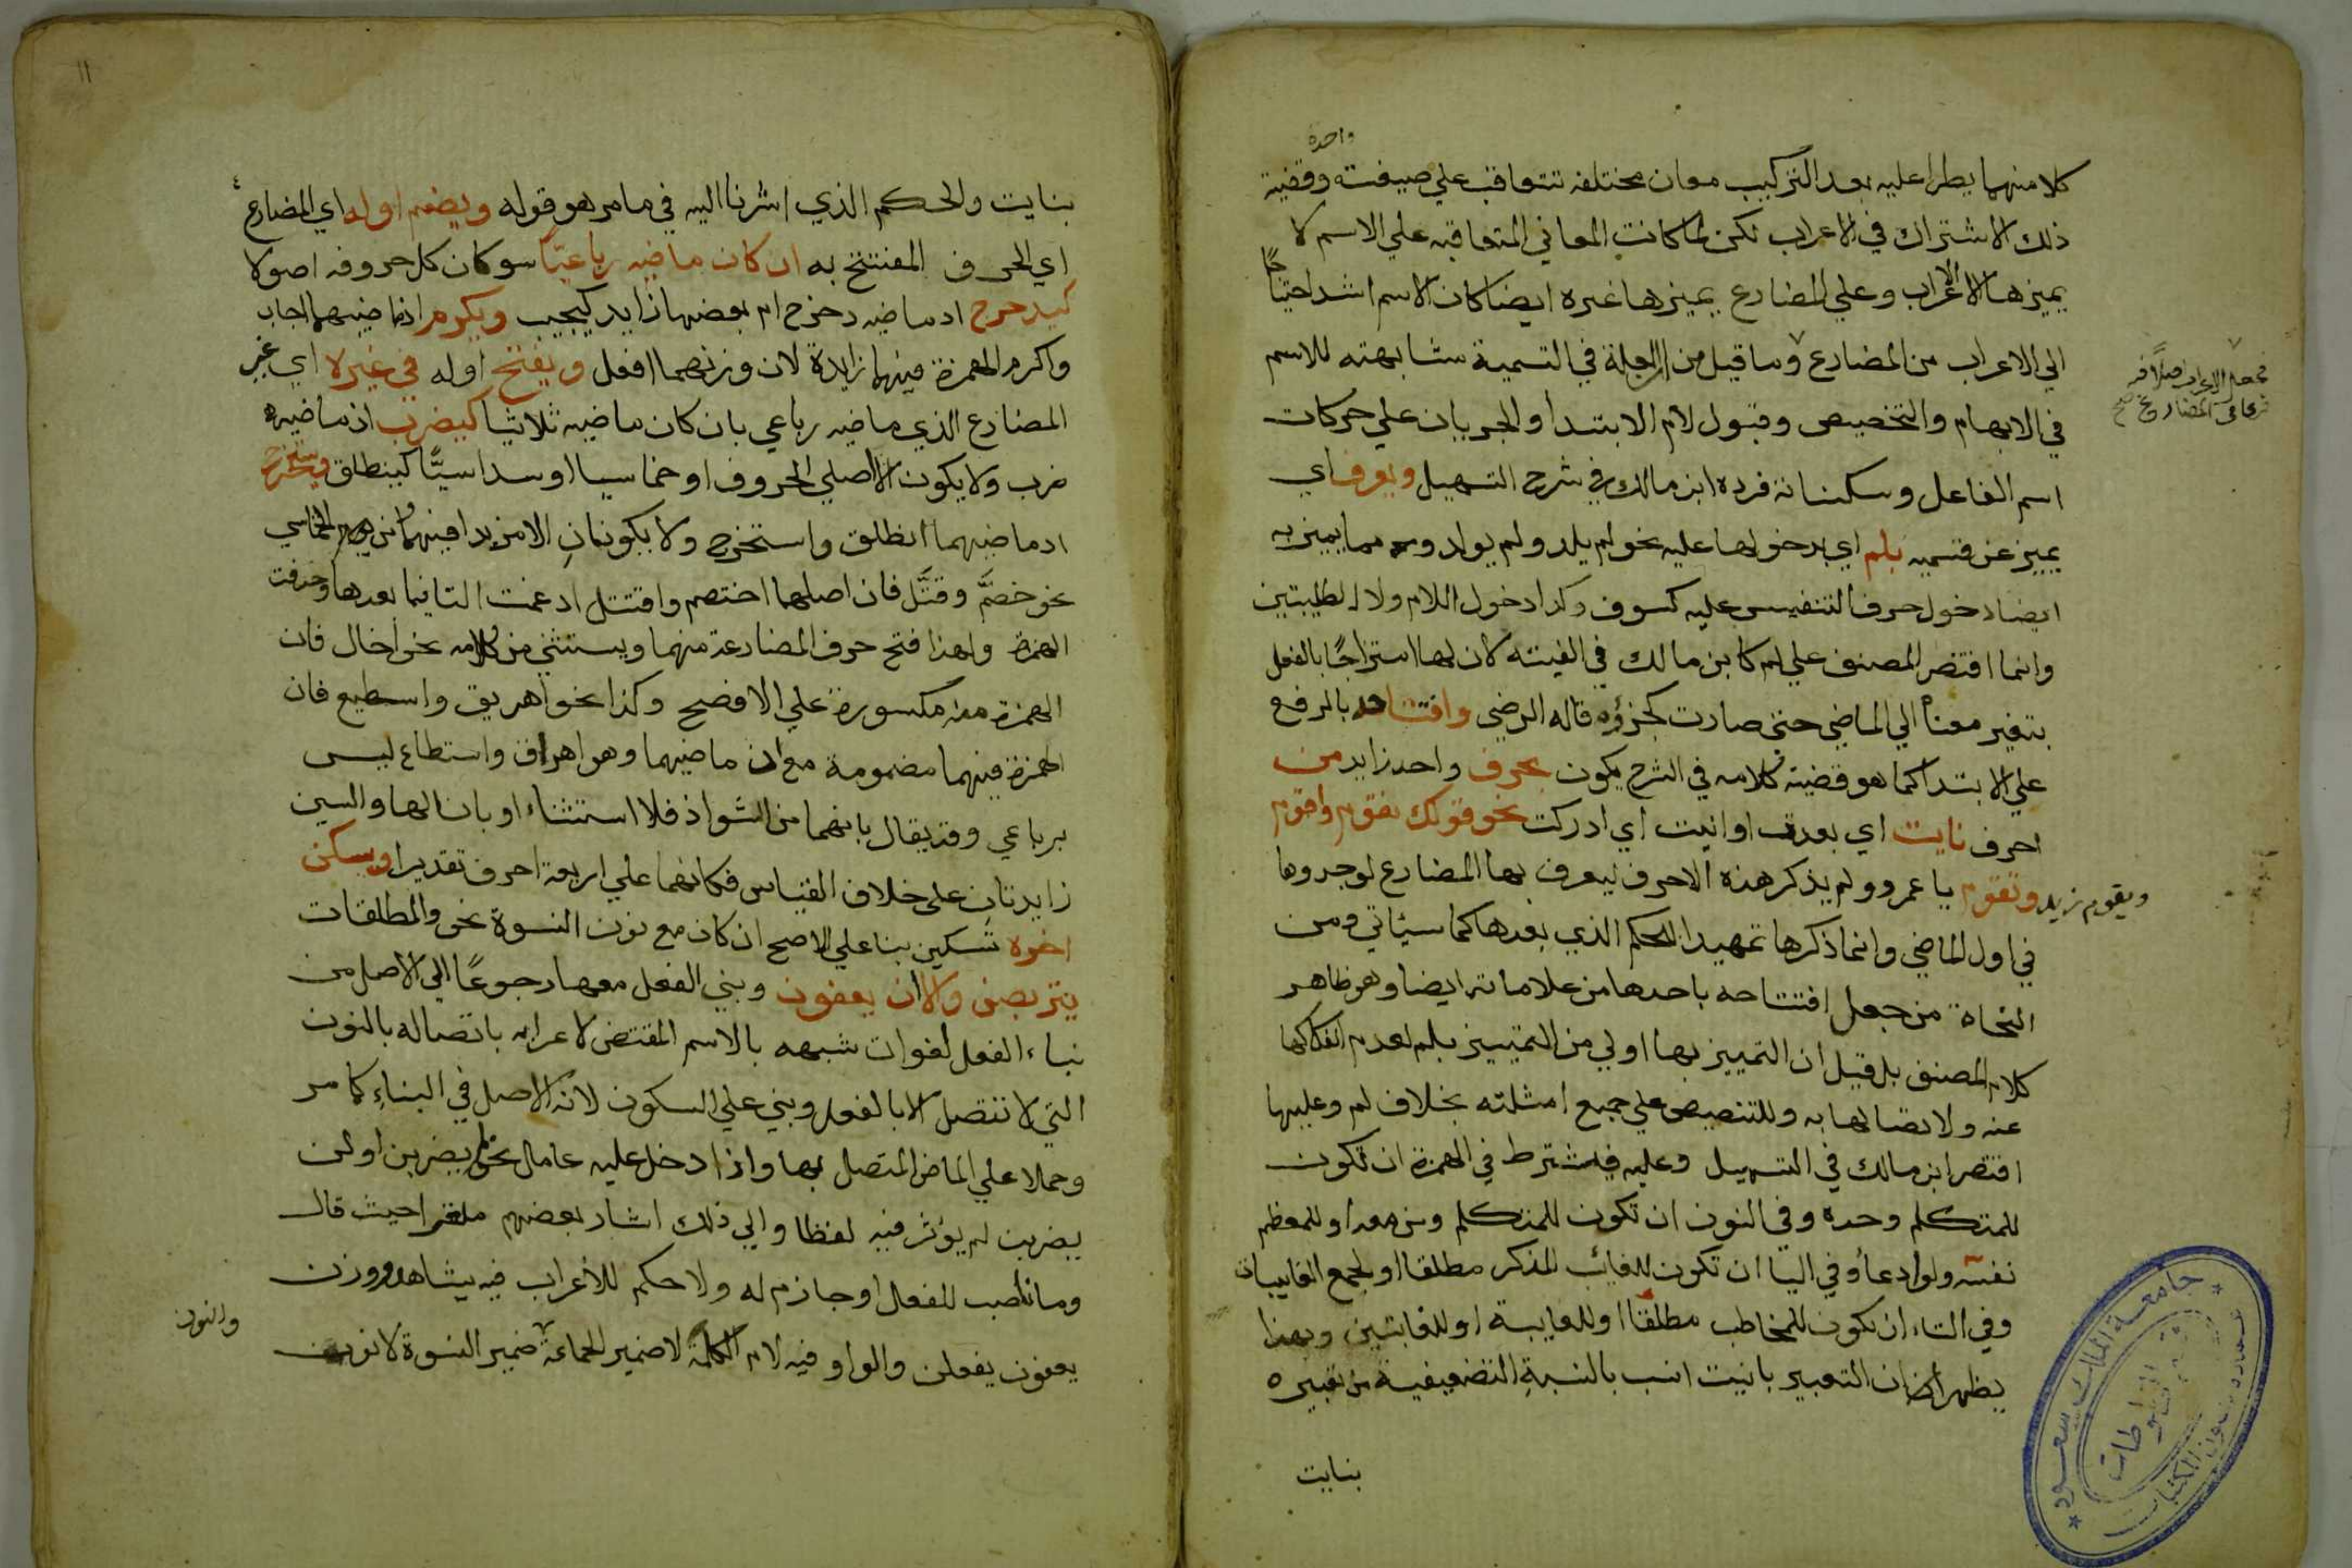 واحدة
كلا منهما يطرا عليه بعد التركيب معان مختلفه تتعاقب علي صيغته وقضية
ذلك الاشتراك في الاعراب لكن لما كانت المعاني المتعاقبه علي الاسم لا
يميزها الا الاعراب وعلي المضارع يميزها غيره ايضا كان الاسم اشد احتياجًا
الي الاعراب من المضارع وما قيل من ان العلة في التسمية مشابهته للاسم
فجعل الاعراب اصلًا فيه
فرعا في المضارع صح
في الابهام والتخصيص وقبول لام الابتدا والجريان علي حركات
اسم الفاعل وسكناته فرده ابن مالك في شرح التسهيل ويعرف اي
يميز عن قسميه بلم اي بدخولها عليه نحو لم يلد ولم يولد ومما يميز به
ايضا دخول حرف التنفيس عليه كسوف وكذا دخول اللام ولا الطلبيتين
وانما اقتصر المصنف علي لم كابن مالك في الفيته لان لها امتزاجًا بالفعل
بتغير معناه الي الماضي حتي صارت كجزؤه قاله الرضي وافتتاحه بالرفع
علي الابتدا كما هو قضية كلامه في الشرح يكون بحرف واحد زايد من
احرف نايت اي بعدت او انيت اي ادركت نحو قولك نقوم واقوم
ويقوم زيد وتقوم يا عمرو ولم يذكر هذه الاحرف ليعرف بها المضارع لوجودها
في اول الماضي وانما ذكرها تمهيدا للحكم الذي بعدها كما سياتي ومن
النحاة من جعل افتتاحه باحدها من علاماته ايضا وهو ظاهر
كلام المصنف بل قيل ان التمييز بها اولي من التمييز بلم لعدم انفكاكها
عنه ولاتصالها به وللتنصيص علي جميع امثلته بخلاف لم وعليها
اقتصر ابن مالك في التسهيل وعليه فيشترط في الهمزة ان تكون
للمتكلم وحده وفي النون ان تكون للمتكلم ومن معه او للمعظم
نفسه ولو ادعاء وفي اليا ان تكون للغائب المذكر مطلقا او لجمع الغايبات
وفي التاء ان تكون للمخاطب مطلقا او للغايبة او للغايبتين وبهذا
يظهر ايضا ان التعبير بانيت انسب بالنسبة التضعيفية من تعبيره
بنايت
جامعة الملك سعود
عمادة شؤون المكتبات
قسم المخطوطات
١١
بنايت والحكم الذي اشرنا اليه في ما مر هو قوله ويضم اوله اي المضارع
اي الحرف المفتتح به ان كان ماضيه رباعيًّا سو كان كل حروفه اصولا
كيدحرج اذ ماضيه دحرج ام بعضها زايد كيجيب ويكرم اذ ماضيهما اجاب
واكرم الهمزة فيهما زايدة لان وزنهما افعل ويفتح اوله في غيره اي غير
المضارع الذي ماضيه رباعي بان كان ماضيه ثلاثيا كيضرب اذ ماضيه
ضرب ولا يكون الا اصلي الحروف او خماسيا او سداسيًّا كينطلق ويستخرج
اذ ماضيهما انطلق واستخرج ولا يكونان الا مزيدا فيهما ومن الخماسي
نحو خصَّم وقتَّل فان اصلهما اختصم واقتتل ادغمت التا فيما بعدها وحذفت
الهمزة ولهذا فتح حرف المضارعة منهما ويستثني من كلامه نحو اخال فان
الهمزة منه مكسورة علي الافصح وكذا نحو اهريق واسطيع فان
الهمزة فيهما مضمومة مع ان ماضيهما وهو اهراق واسطاع ليس
برباعي وقد يقال بانهما من الشواذ فلا استثناء او بان الها والسين
زايدتان على خلاف القياس فكانهما علي اربعة احرف تقديرا ويسكن
اخره تسكين بنا علي الاصح ان كان مع نون النسوة نحو والمطلقات
يتربصن والا ان يعفون وبني الفعل معها رجوعًا الي الاصل من
بناء الفعل لفوات شبهه بالاسم المقتضي لاعرابه باتصاله بالنون
التي لا تتصل الا بالفعل وبني علي السكون لانه الاصل في البناء كما مر
وحملا علي الماضي المتصل بها واذا دخل عليه عامل نحو لم يضربن او لن
يضربن لم يؤثر فيه لفظا والي ذلك اشار بعضهم ملغزا حيث قال
وما ناصب للفعل او جازم له ولا حكم للاعراب فيه يشاهد ووزن
يعفون يفعلن والواو فيه لام الكلمة لا ضمير الجماعة ضمير النسوة لا نون
والنون